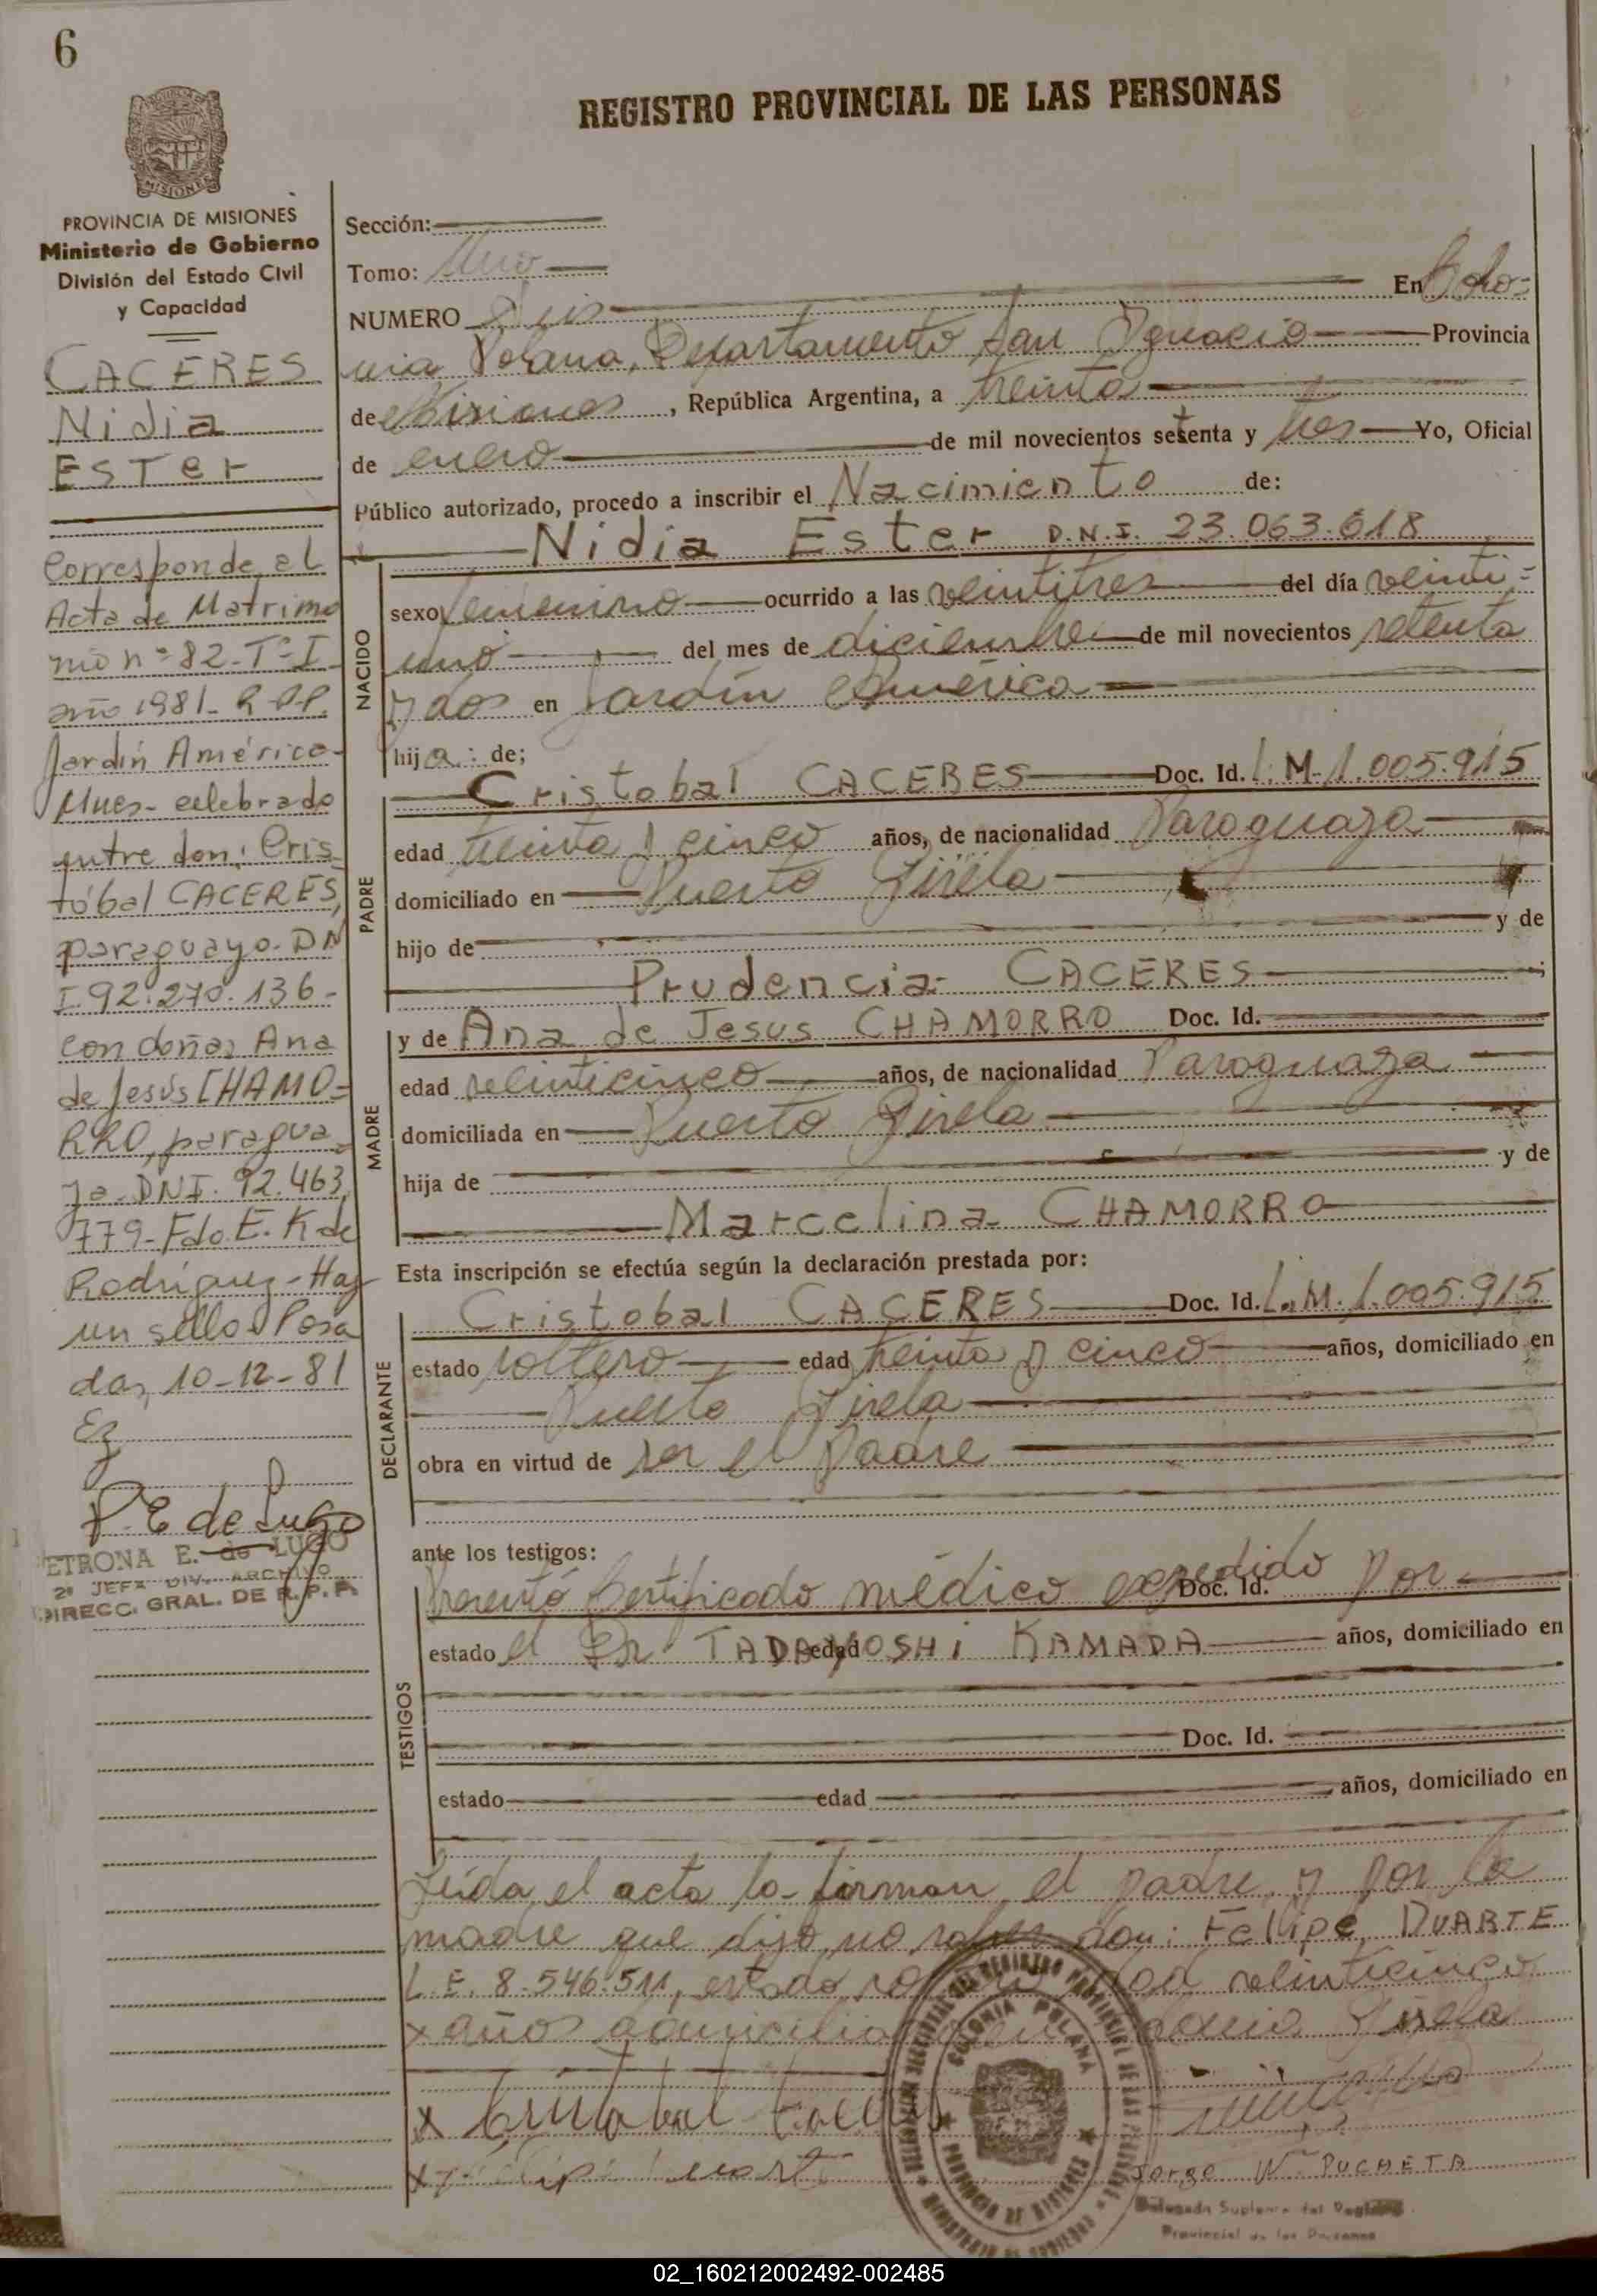 6
REGISTRO PROVINCIAL DE LAS PERSONAS
MISIONES
PROVINCIA DE MISIONES
Ministerio de Gobierno
División del Estado Civil
y Capacidad
CACERES
Nidia
ESTer
Corresponde al
Acta de Matrimo
nio nº 82-Tº I
año 1981- R.P.P.
Jardín América
Mnes- celebrado
entre don: Cris
tóbal CACERES,
paraguayo- DN
I.92.270.136-
con doña, Ana
de Jesús CHAMO=
RRO, paragua
ya- DNI. 92.463.
779- Fdo. E. K de
Rodríguez- Hay
un sello- Posa
das, 10-12-81
P. E de Lugo
PETRONA E. de LUGO
2º JEFA DIV. ARCHIVO
DIRECC. GRAL. DE R.P.P.
Sección:
Tomo: Uno
NUMERO Seis En Colo=
nia Polana, Departamento San Ignacio Provincia
de Misiones, República Argentina, a treinta
de enero de mil novecientos setenta y tres Yo, Oficial
Público autorizado, procedo a inscribir el Nacimiento de:
Nidia Ester D.N.I. 23.063.618
NACIDO
sexo femenino ocurrido a las veintitres del día veinti=
uno del mes de diciembre de mil novecientos setenta
y dos en Jardín América
hija: de;
PADRE
Cristobal CACERES Doc. Id. I.M. 1.005.915
edad treinta y cinco años, de nacionalidad Paraguaya
domiciliado en Puerto Gisela
hijo de y de
Prudencia CACERES ;
MADRE
y de Ana de Jesus CHAMORRO Doc. Id.
edad veinticinco años, de nacionalidad Paraguaya
domiciliada en Puerto Gisela
hija de y de
Marcelina CHAMORRO
Esta inscripción se efectúa según la declaración prestada por:
DECLARANTE
Cristobal CACERES Doc. Id. I.M. 1.005.915
estado soltero edad treinta y cinco años, domiciliado en
Puerto Gisela
obra en virtud de ser el Padre
ante los testigos:
TESTIGOS
Presentó Certificado médico expedido por Doc. Id.
estado el Dr. TADAYOSHI KAMADA edad años, domiciliado en
Doc. Id.
estado edad años, domiciliado en
Leída el acta la firman el padre, y por la
madre que dijo no saber don: Fellipe DUARTE
L.E. 8.546.511, estado edad veinticinco
años Gisela
x Cristobal Caceres
x
Jorge W. PUCHETA
Delegado Suplente del Registro
Provincial de las Personas
COLONIA POLANA
PROVINCIA DE MISIONES
02_160212002492-002485